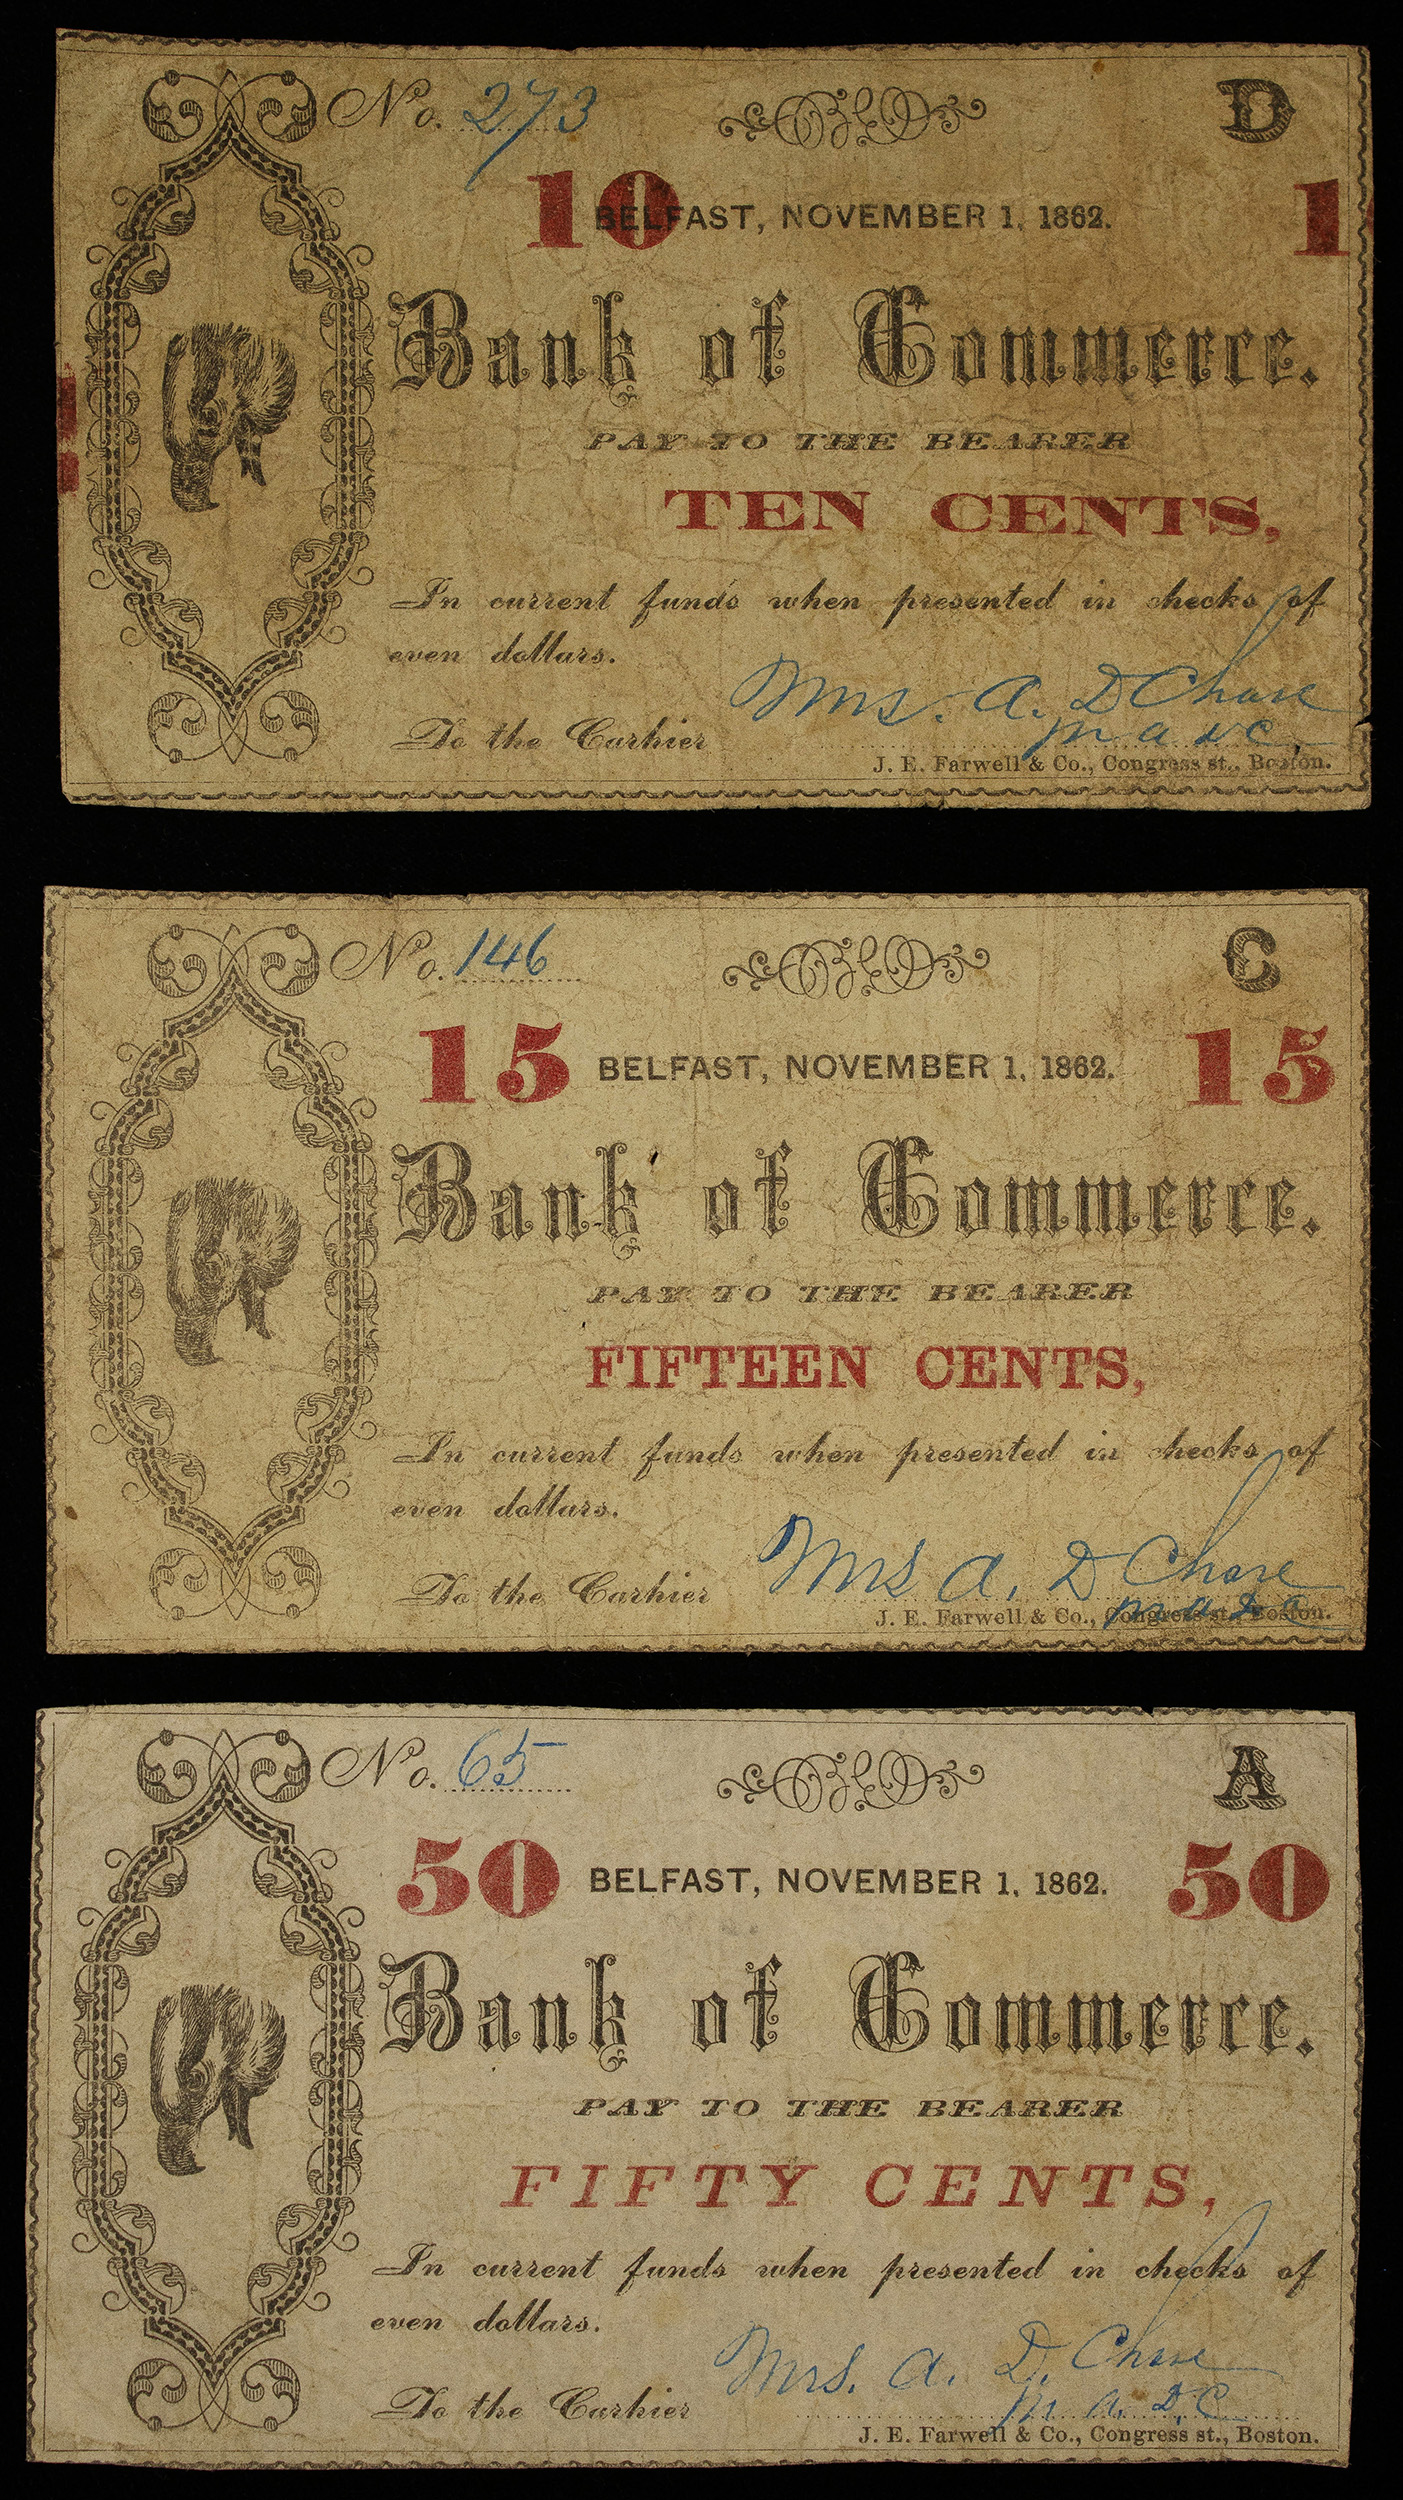 No. 273 D
10 BELFAST, NOVEMBER 1, 1862. 1
Bank of Commerce.
PAY TO THE BEARER
TEN CENTS,
In current funds when presented in checks of
even dollars.
Mrs. A. D Chase
To the Cashier m a D C
J. E. Farwell & Co., Congress st., Boston.
No. 146 C
15 BELFAST, NOVEMBER 1, 1862. 15
Bank of Commerce.
PAY TO THE BEARER
FIFTEEN CENTS,
In current funds when presented in checks of
even dollars.
To the Cashier Mrs A. D Chase
m a D C
J. E. Farwell & Co., Congress st., Boston.
No. 65 A
50 BELFAST, NOVEMBER 1, 1862. 50
Bank of Commerce.
PAY TO THE BEARER
FIFTY CENTS,
In current funds when presented in checks of
even dollars.
Mrs. A. D. Chase
To the Cashier m a. D. C
J. E. Farwell & Co., Congress st., Boston.